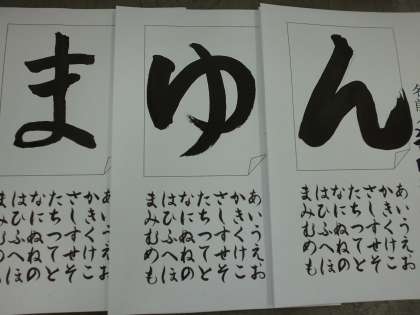 ま
かきくけこ
さしすせそ
たちつてと
なにぬねの
はひふへほ
まみむめも
ゆ
あいうえお
かきくけこ
さしすせそ
たちつてと
なにぬねの
はひふへほ
まみむめも
ん
名前
あいうえお
かきくけこ
さしすせそ
たちつてと
なにぬねの
はひふへほ
まみむめも